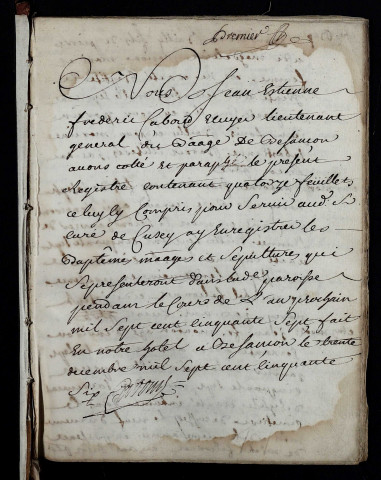 premier
Nous Jean Estienne
frederic Labord Ecuyer lieutenant
general du Bâage De Besancon
avons cotté et paraphé le present
Registre contenant quatorze feuillets
celuy cy Compris pour Servir aud. S
curé de Cusey a y Enregistrer les
Baptêmes maages et Sepultures qui
Se presenteront dans lade paroisse
pendant le Cours de L'an prochain
mil Sept cent cinquante Sept fait
En notre hotel a Besancon le trente
decembre mil Sept cent cinquante
Six